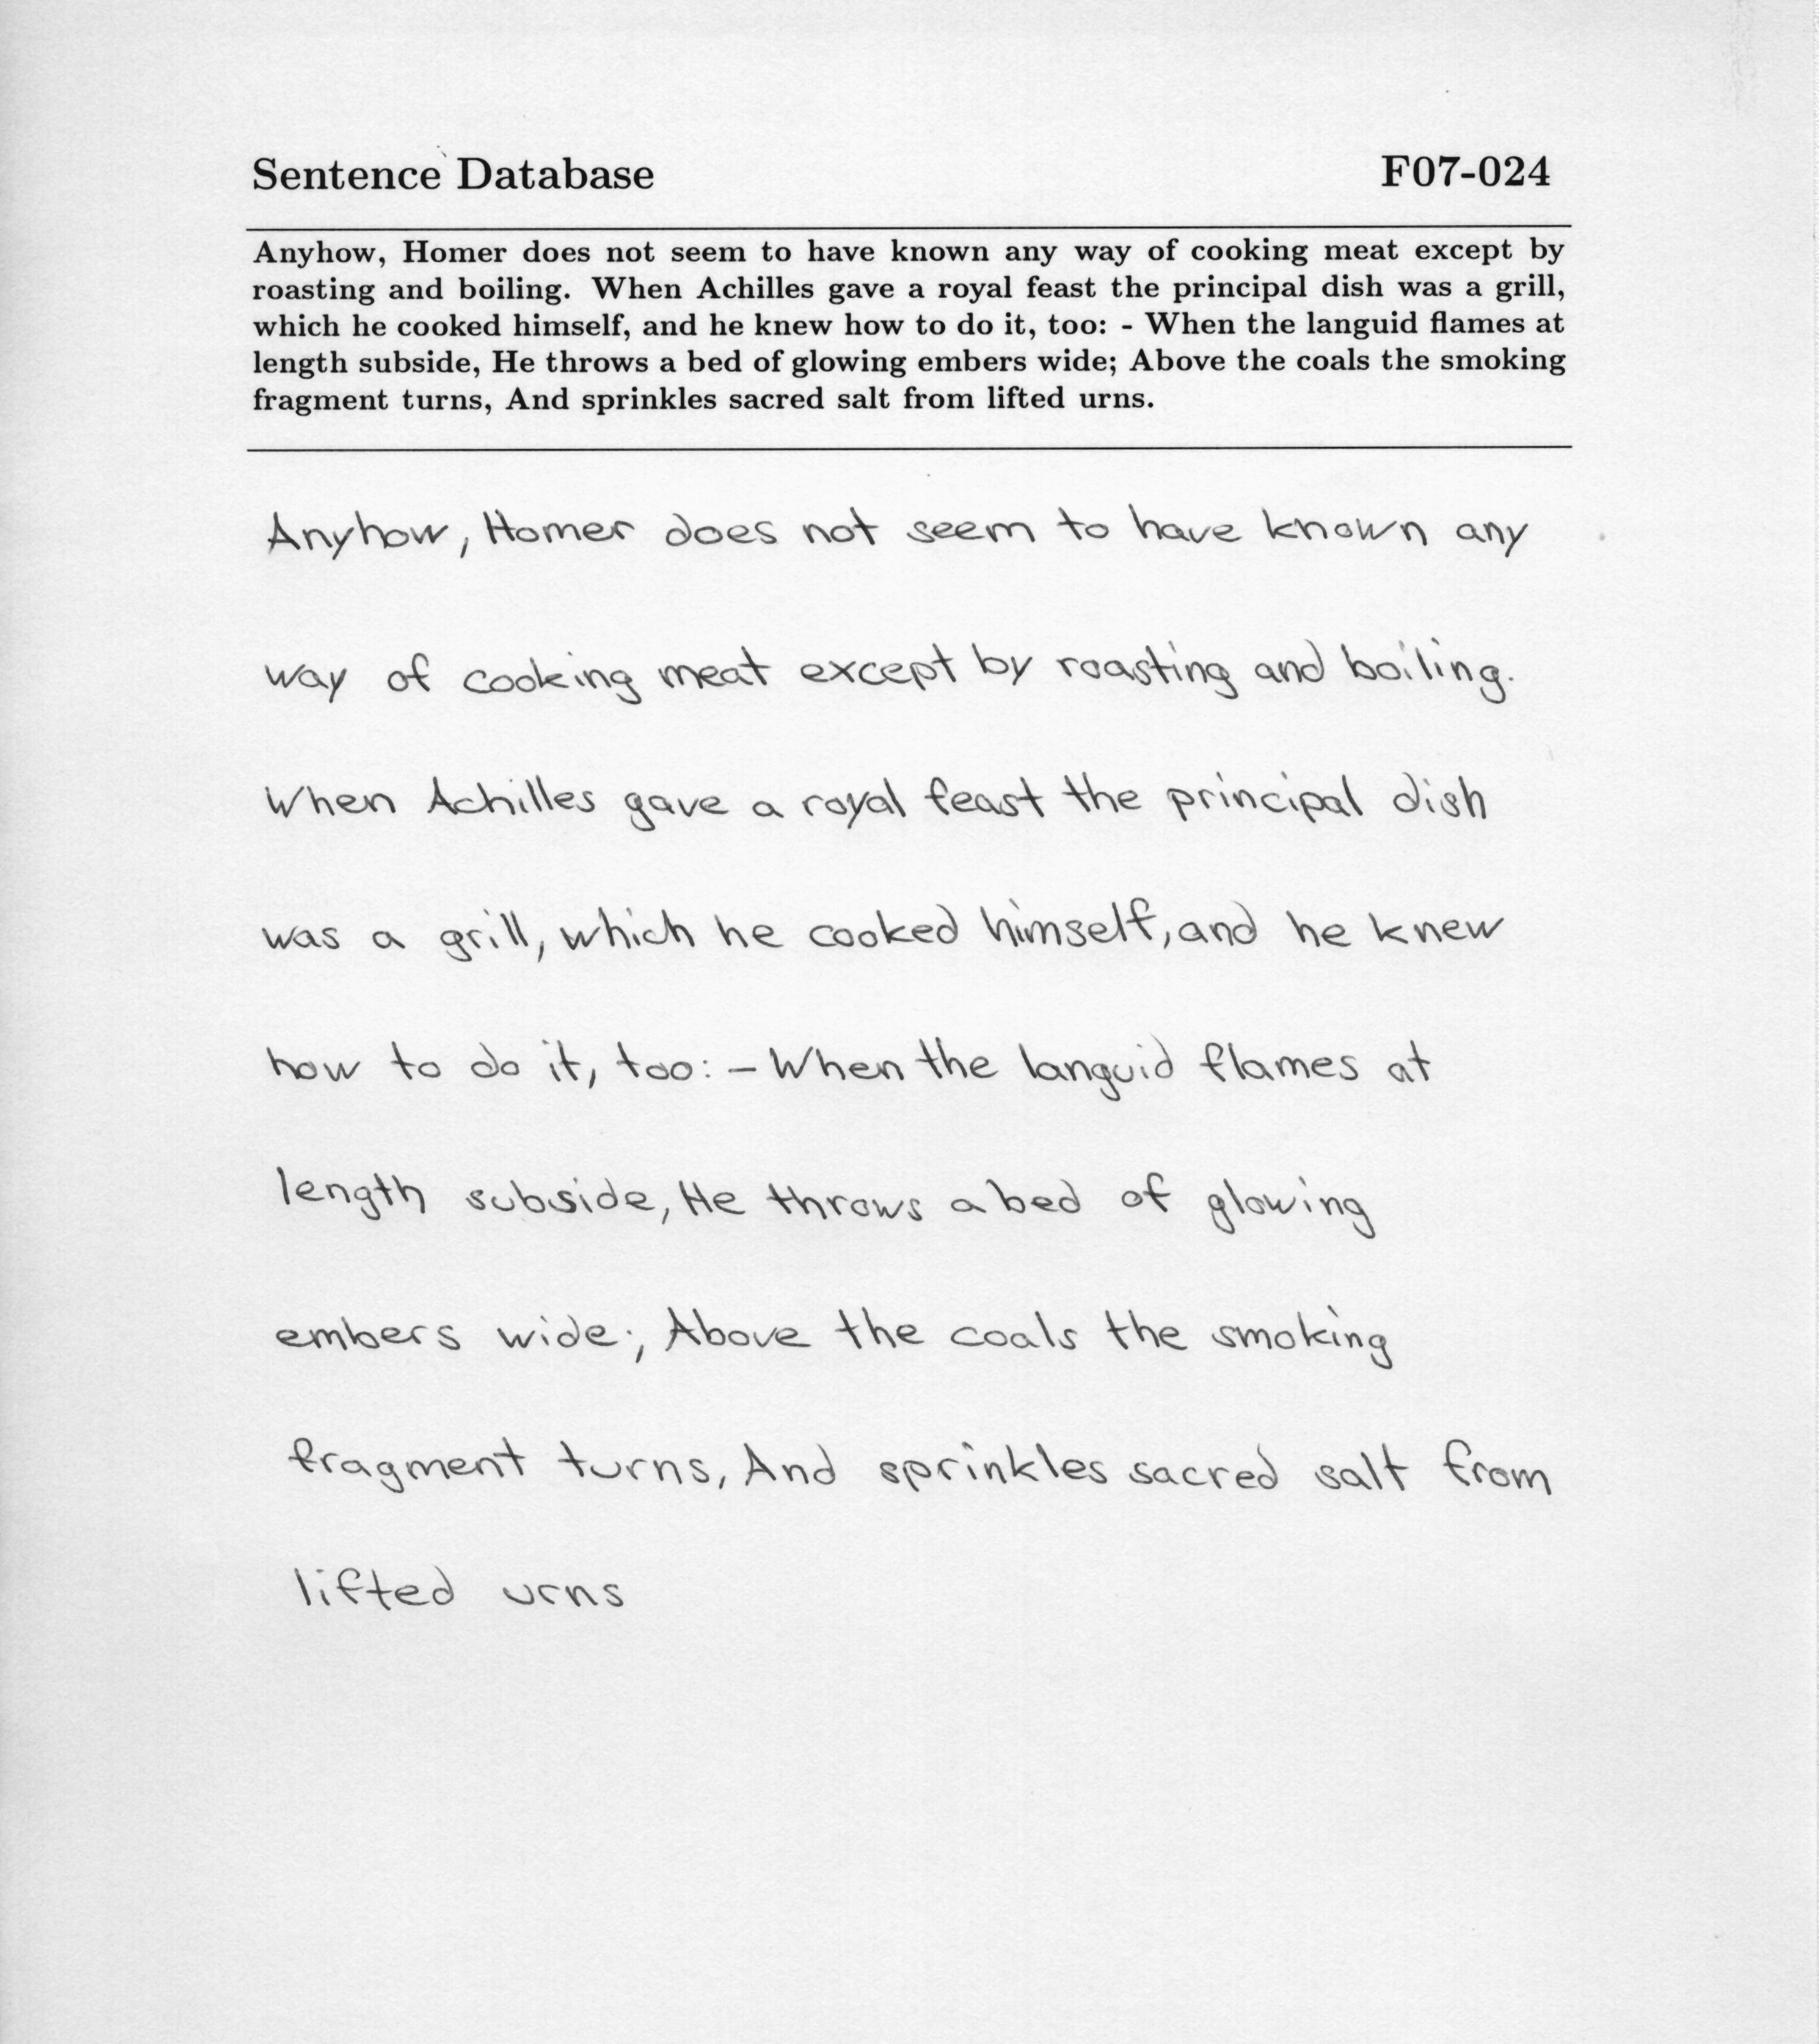 Sentence Database F07-024
Anyhow, Homer does not seem to have known any way of cooking meat except by
roasting and boiling. When Achilles gave a royal feast the principal dish was a grill,
which he cooked himself, and he knew how to do it, too: - When the languid flames at
length subside, He throws a bed of glowing embers wide; Above the coals the smoking
fragment turns, And sprinkles sacred salt from lifted urns.
Anyhow, Homer does not seem to have known any
way of cooking meat except by roasting and boiling.
When Achilles gave a royal feast the principal dish
was a grill, which he cooked himself, and he knew
how to do it, too: - When the languid flames at
length subside, He throws a bed of glowing
embers wide; Above the coals the smoking
fragment turns, And sprinkles sacred salt from
lifted urns